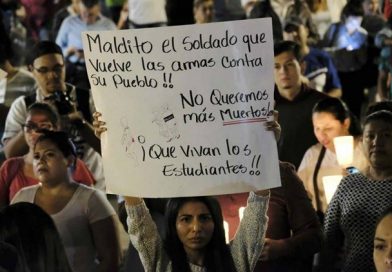 Maldito el soldado que
Vuelve las armas Contra
su Pueblo!!
No Queremos
más Muertos!
¡Que Vivan los
Estudiantes!!